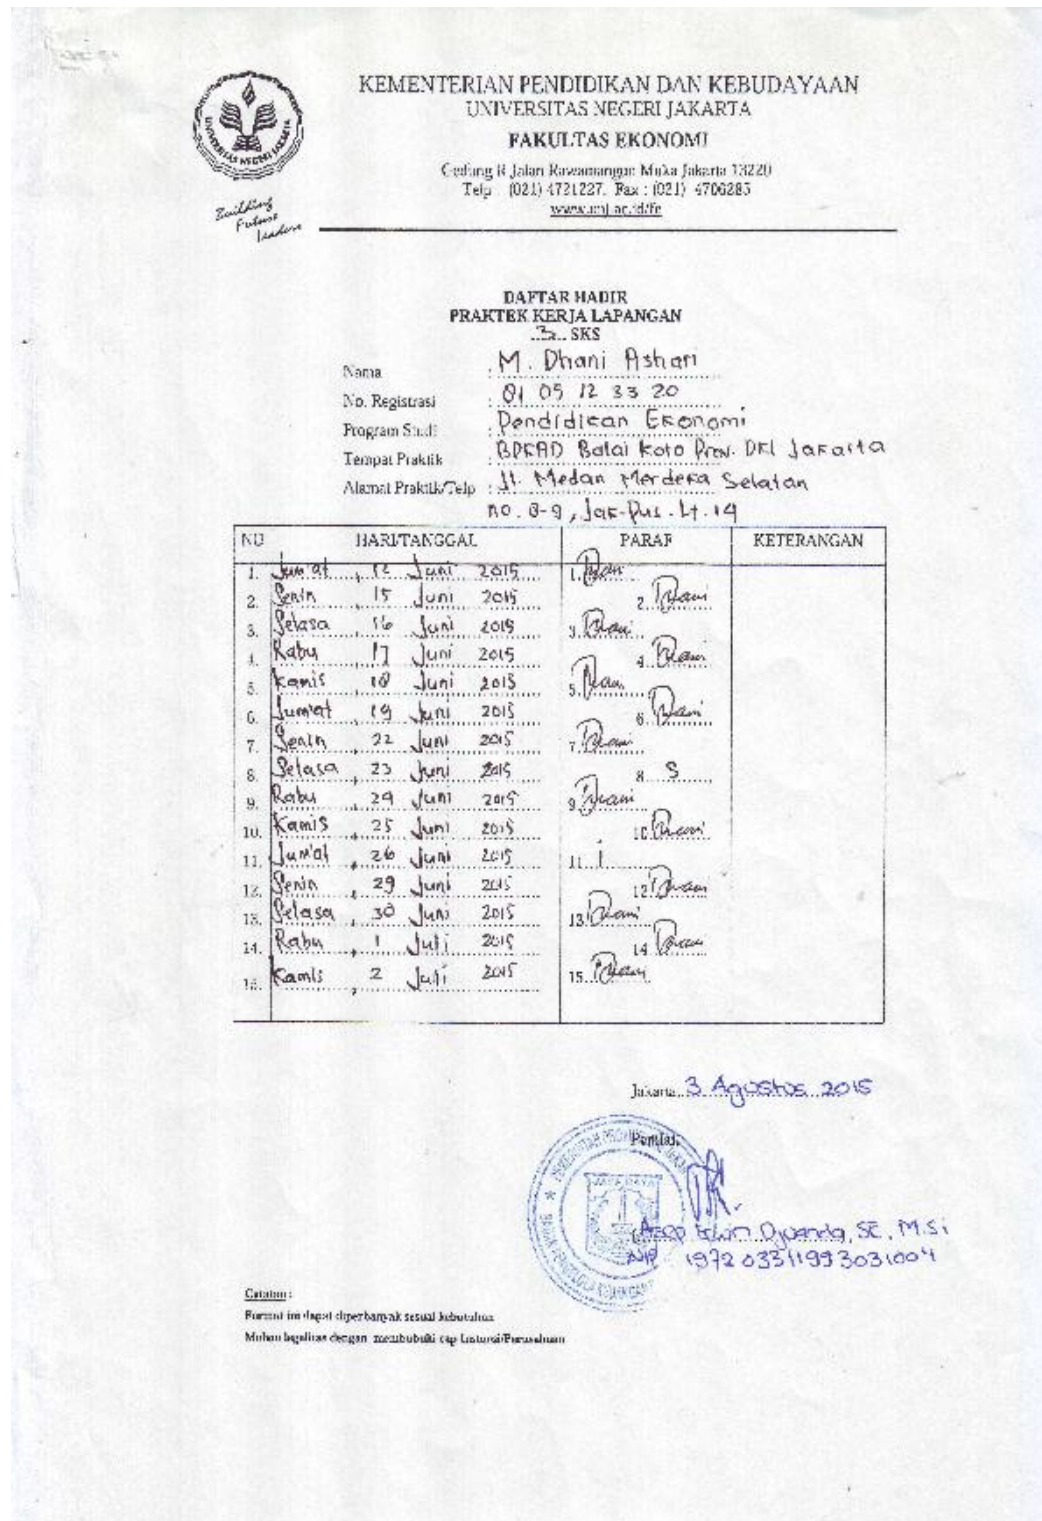 KEMENTERIAN PENDIDIKAN DAN KEBUDAYAAN
UNIVERSITAS NEGERI JAKARTA
FAKULTAS EKONOMI
Gedung R Jalan Rawamangun Muka Jakarta 13220
Telp : (021) 4721227, Fax : (021) 4706285
www.unj.ac.id/fe
UNIVERSITAS NEGERI JAKARTA
Building
Future
Leaders
DAFTAR HADIR
PRAKTEK KERJA LAPANGAN
3 SKS
Nama : M. Dhani Ashari
No. Registrasi : 81 05 12 33 20
Program Studi : Pendidikan Ekonomi
Tempat Praktik : BPKAD Balai Kota Prov. DKI Jakarta
Alamat Praktik/Telp : Jl. Medan Merdeka Selatan
no. 8-9, Jak-Pus. Lt. 14
NO HARI/TANGGAL PARAF KETERANGAN
1. Jum'at, 12 Juni 2015 1. Dhani
2. Senin 15 Juni 2015 2. Dhani
3. Selasa, 16 Juni 2015 3. Dhani
4. Rabu, 17 Juni 2015 4. Dhani
5. Kamis, 18 Juni 2015 5. Dhani
6. Jum'at, 19 Juni 2015 6. Dhani
7. Senin, 22 Juni 2015 7. Dhani
8. Selasa, 23 Juni 2015 8. S
9. Rabu, 24 Juni 2015 9. Dhani
10. Kamis, 25 Juni 2015 10. Dhani
11. Jum'at, 26 Juni 2015 11. i
12. Senin, 29 Juni 2015 12. Dhani
13. Selasa, 30 Juni 2015 13. Dhani
14. Rabu, 1 Juli 2015 14. Dhani
15. Kamis, 2 Juli 2015 15. Dhani
Jakarta, 3 Agustus 2015
Penilai,
JAYA RAYA
Asep Erwin Djuanda, SE, M.Si
NIP 197203311993031004
Catatan :
Format ini dapat diperbanyak sesuai kebutuhan
Mohon legalitas dengan membubuhi cap Instansi/Perusahaan